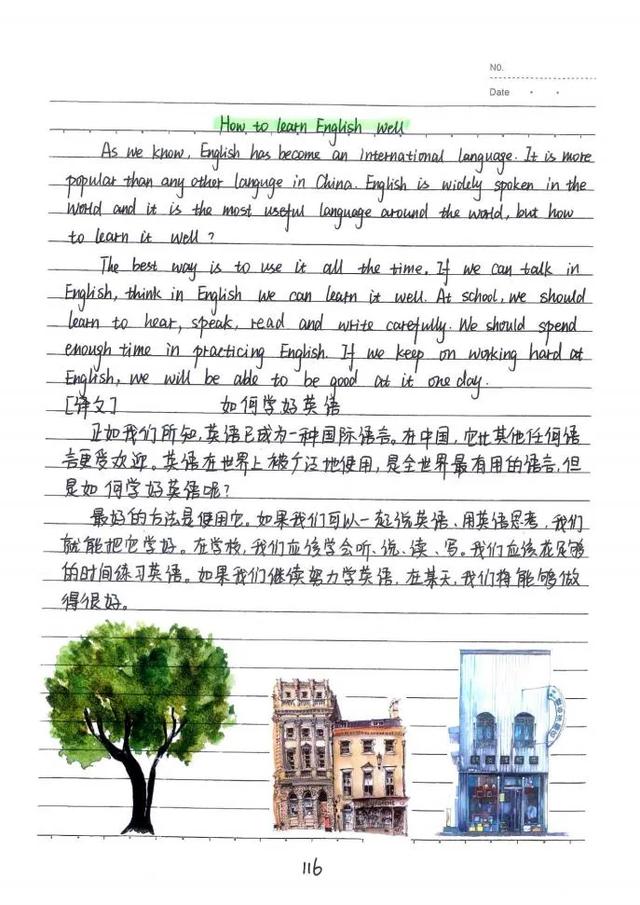 NO.
Date
How to learn English well
As we know, English has become an international language. It is more
popular than any other languge in China. English is widely spoken in the
world and it is the most useful language around the world, but how
to learn it well?
The best way is to use it all the time. If we can talk in
English, think in English we can learn it well. At school, we should
learn to hear, speak, read and write carefully. We should spend
enough time in practicing English. If we keep on working hard at
English, we will be able to be good at it one day.
[译文] 如何学好英语
正如我们所知,英语已成为一种国际语言。在中国,它比其他任何语
言更受欢迎。英语在世界上被广泛地使用,是全世界最有用的语言,但
是如何学好英语呢?
最好的方法是使用它。如果我们可以一起说英语、用英语思考,我们
就能把它学好。在学校,我们应该学会听、说、读、写。我们应该花足够
的时间练习英语。如果我们继续努力学英语,在某天,我们将能够做
得很好。
116